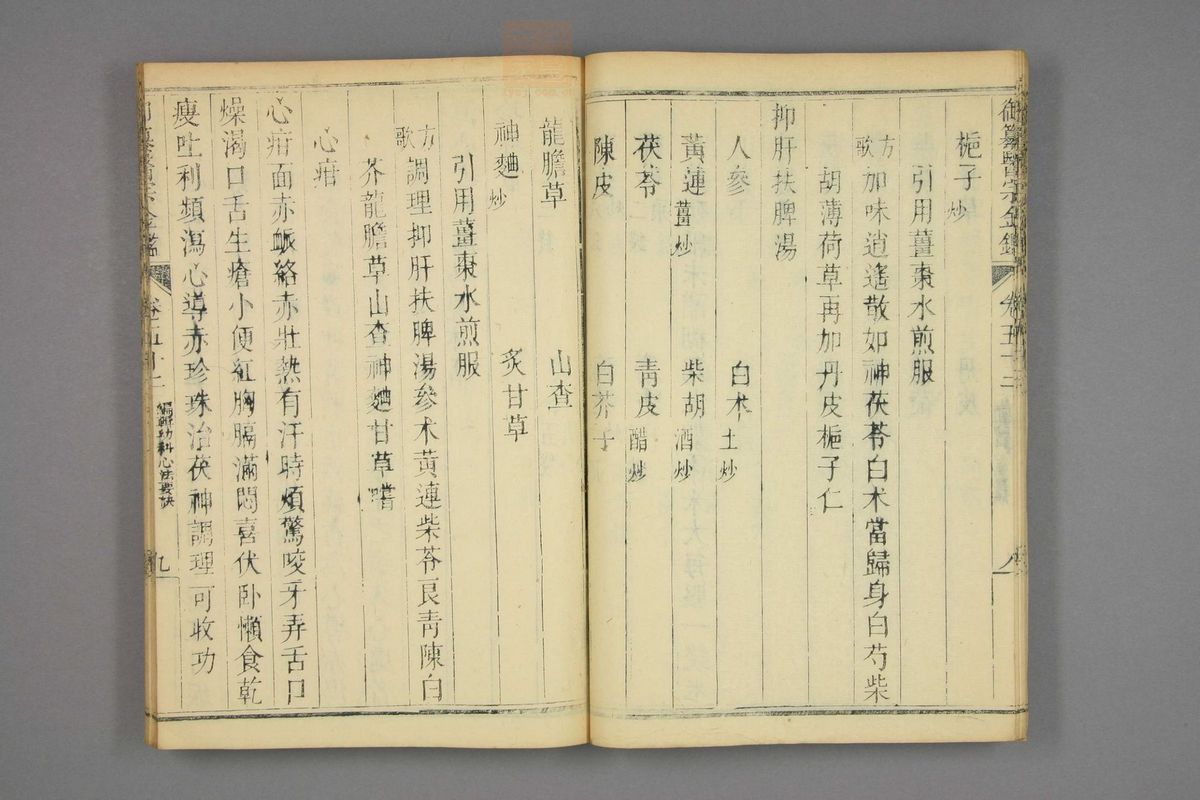 御纂醫宗金鑑 卷五十二 八
梔子炒
引用薑棗水煎服
方歌 加味逍遙散如神茯苓白术當歸身白芍柴
胡薄荷草再加丹皮梔子仁
抑肝扶脾湯
人參 白术土炒
黃連薑炒 柴胡酒炒
茯苓 青皮醋炒
陳皮 白芥子
龍膽草 山查
神麯炒 炙甘草
引用薑棗水煎服
方歌 調理抑肝扶脾湯參术黃連柴苓良青陳白
芥龍膽草山查神麯甘草嚐
心疳
心疳面赤脈絡赤壯熱有汗時煩驚咬牙弄舌口
燥渴口舌生瘡小便紅胸膈滿悶喜伏卧懶食乾
瘦吐利頻瀉心導赤珍珠治茯神調理可收功
御纂醫宗金鑑 卷五十二 編輯幼科心法要訣 九